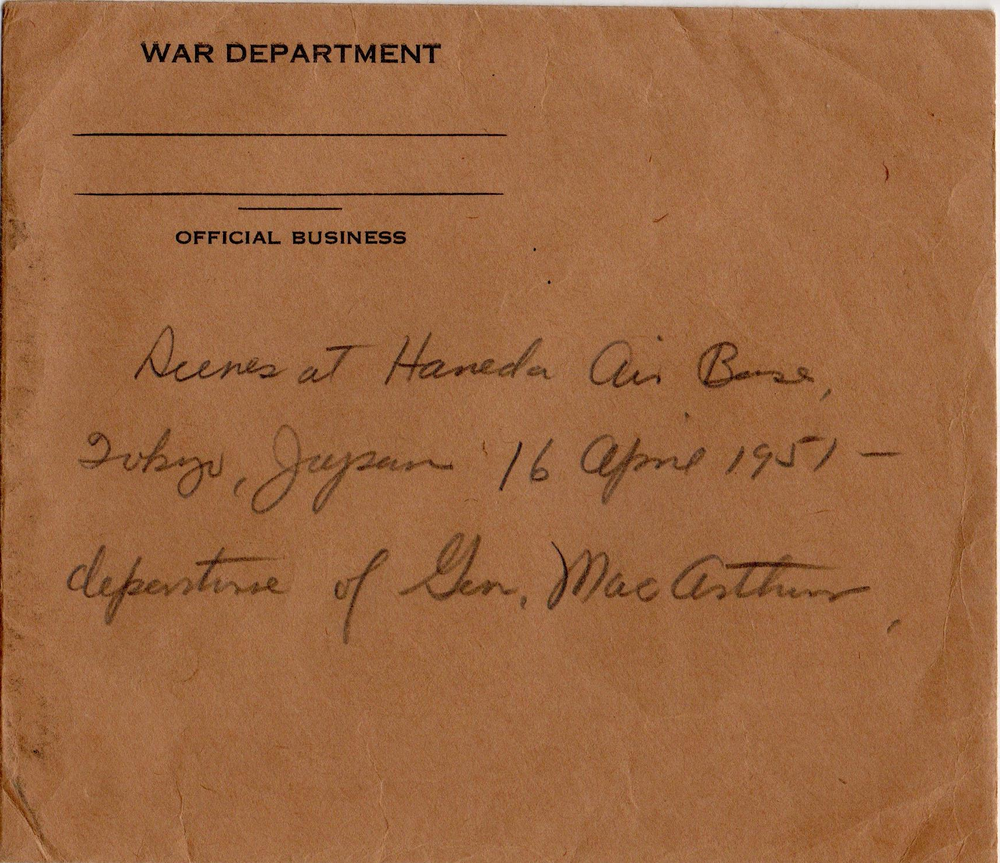 WAR DEPARTMENT
OFFICIAL BUSINESS
Scenes at Haneda Air Base,
Tokyo, Japan 16 April 1951 —
departure of Gen. MacArthur,